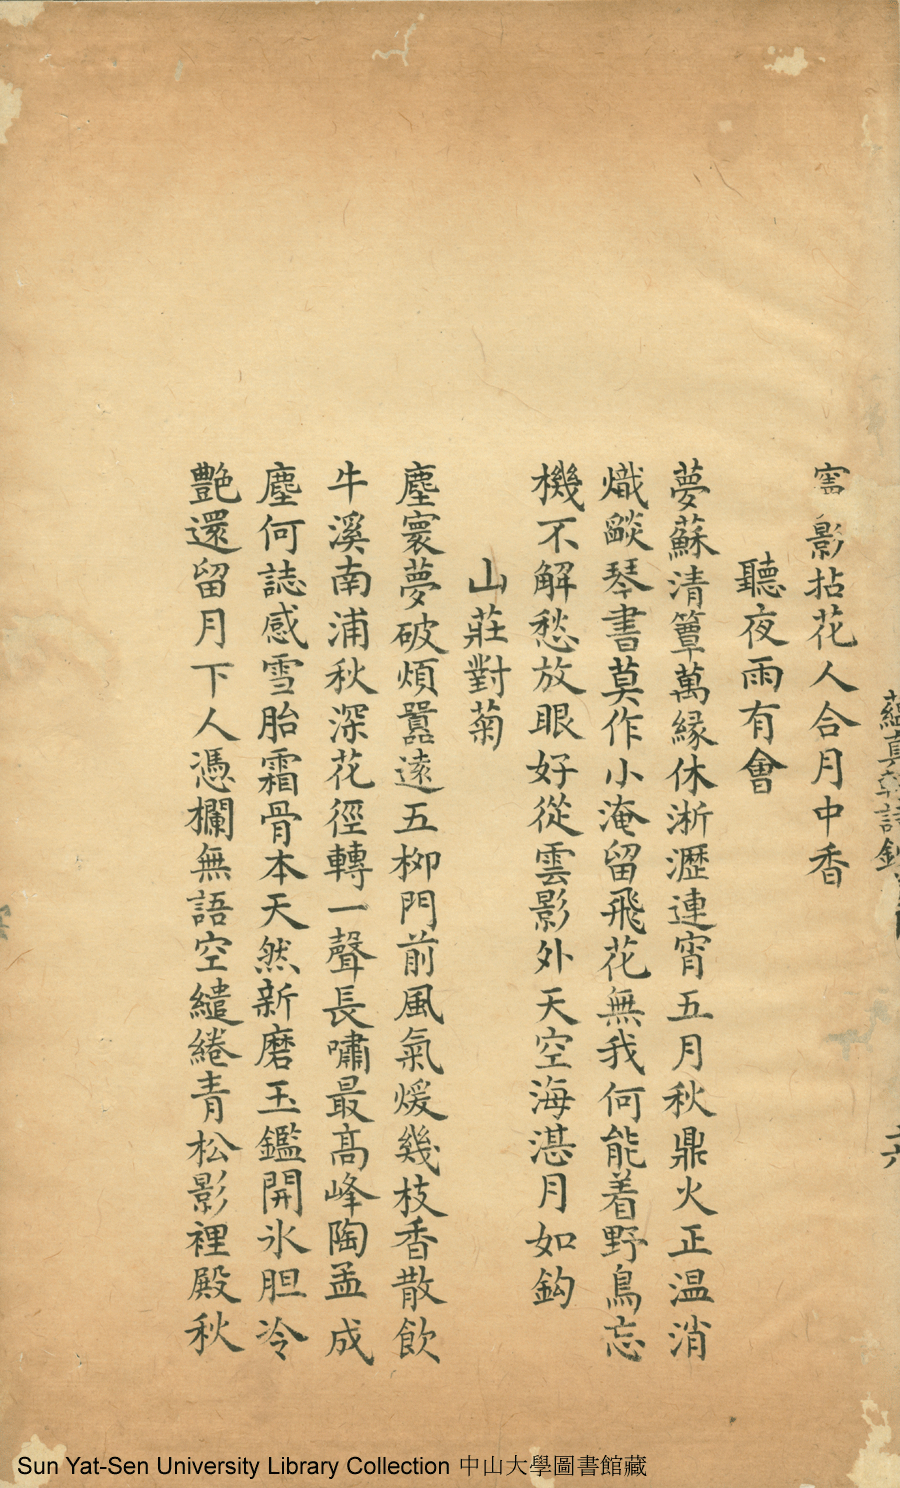 蘊真軒詩鈔
窗影拈花人合月中香
聽夜雨有會
夢蘇清簟萬緣休淅瀝連宵五月秋鼎火正温消
熾燄琴書莫作小淹留飛花無我何能着野鳥忘
機不解愁放眼好從雲影外天空海湛月如鈎
山莊對菊
塵寰夢破煩囂遠五柳門前風氣煖幾枝香散飲
牛溪南浦秋深花徑轉一聲長嘯最高峰陶孟成
塵何誌感雪胎霜骨本天然新磨玉鑑開氷胆冷
艷還留月下人憑欄無語空繾綣青松影裡殿秋
Sun Yat-Sen University Library Collection 中山大學圖書館藏